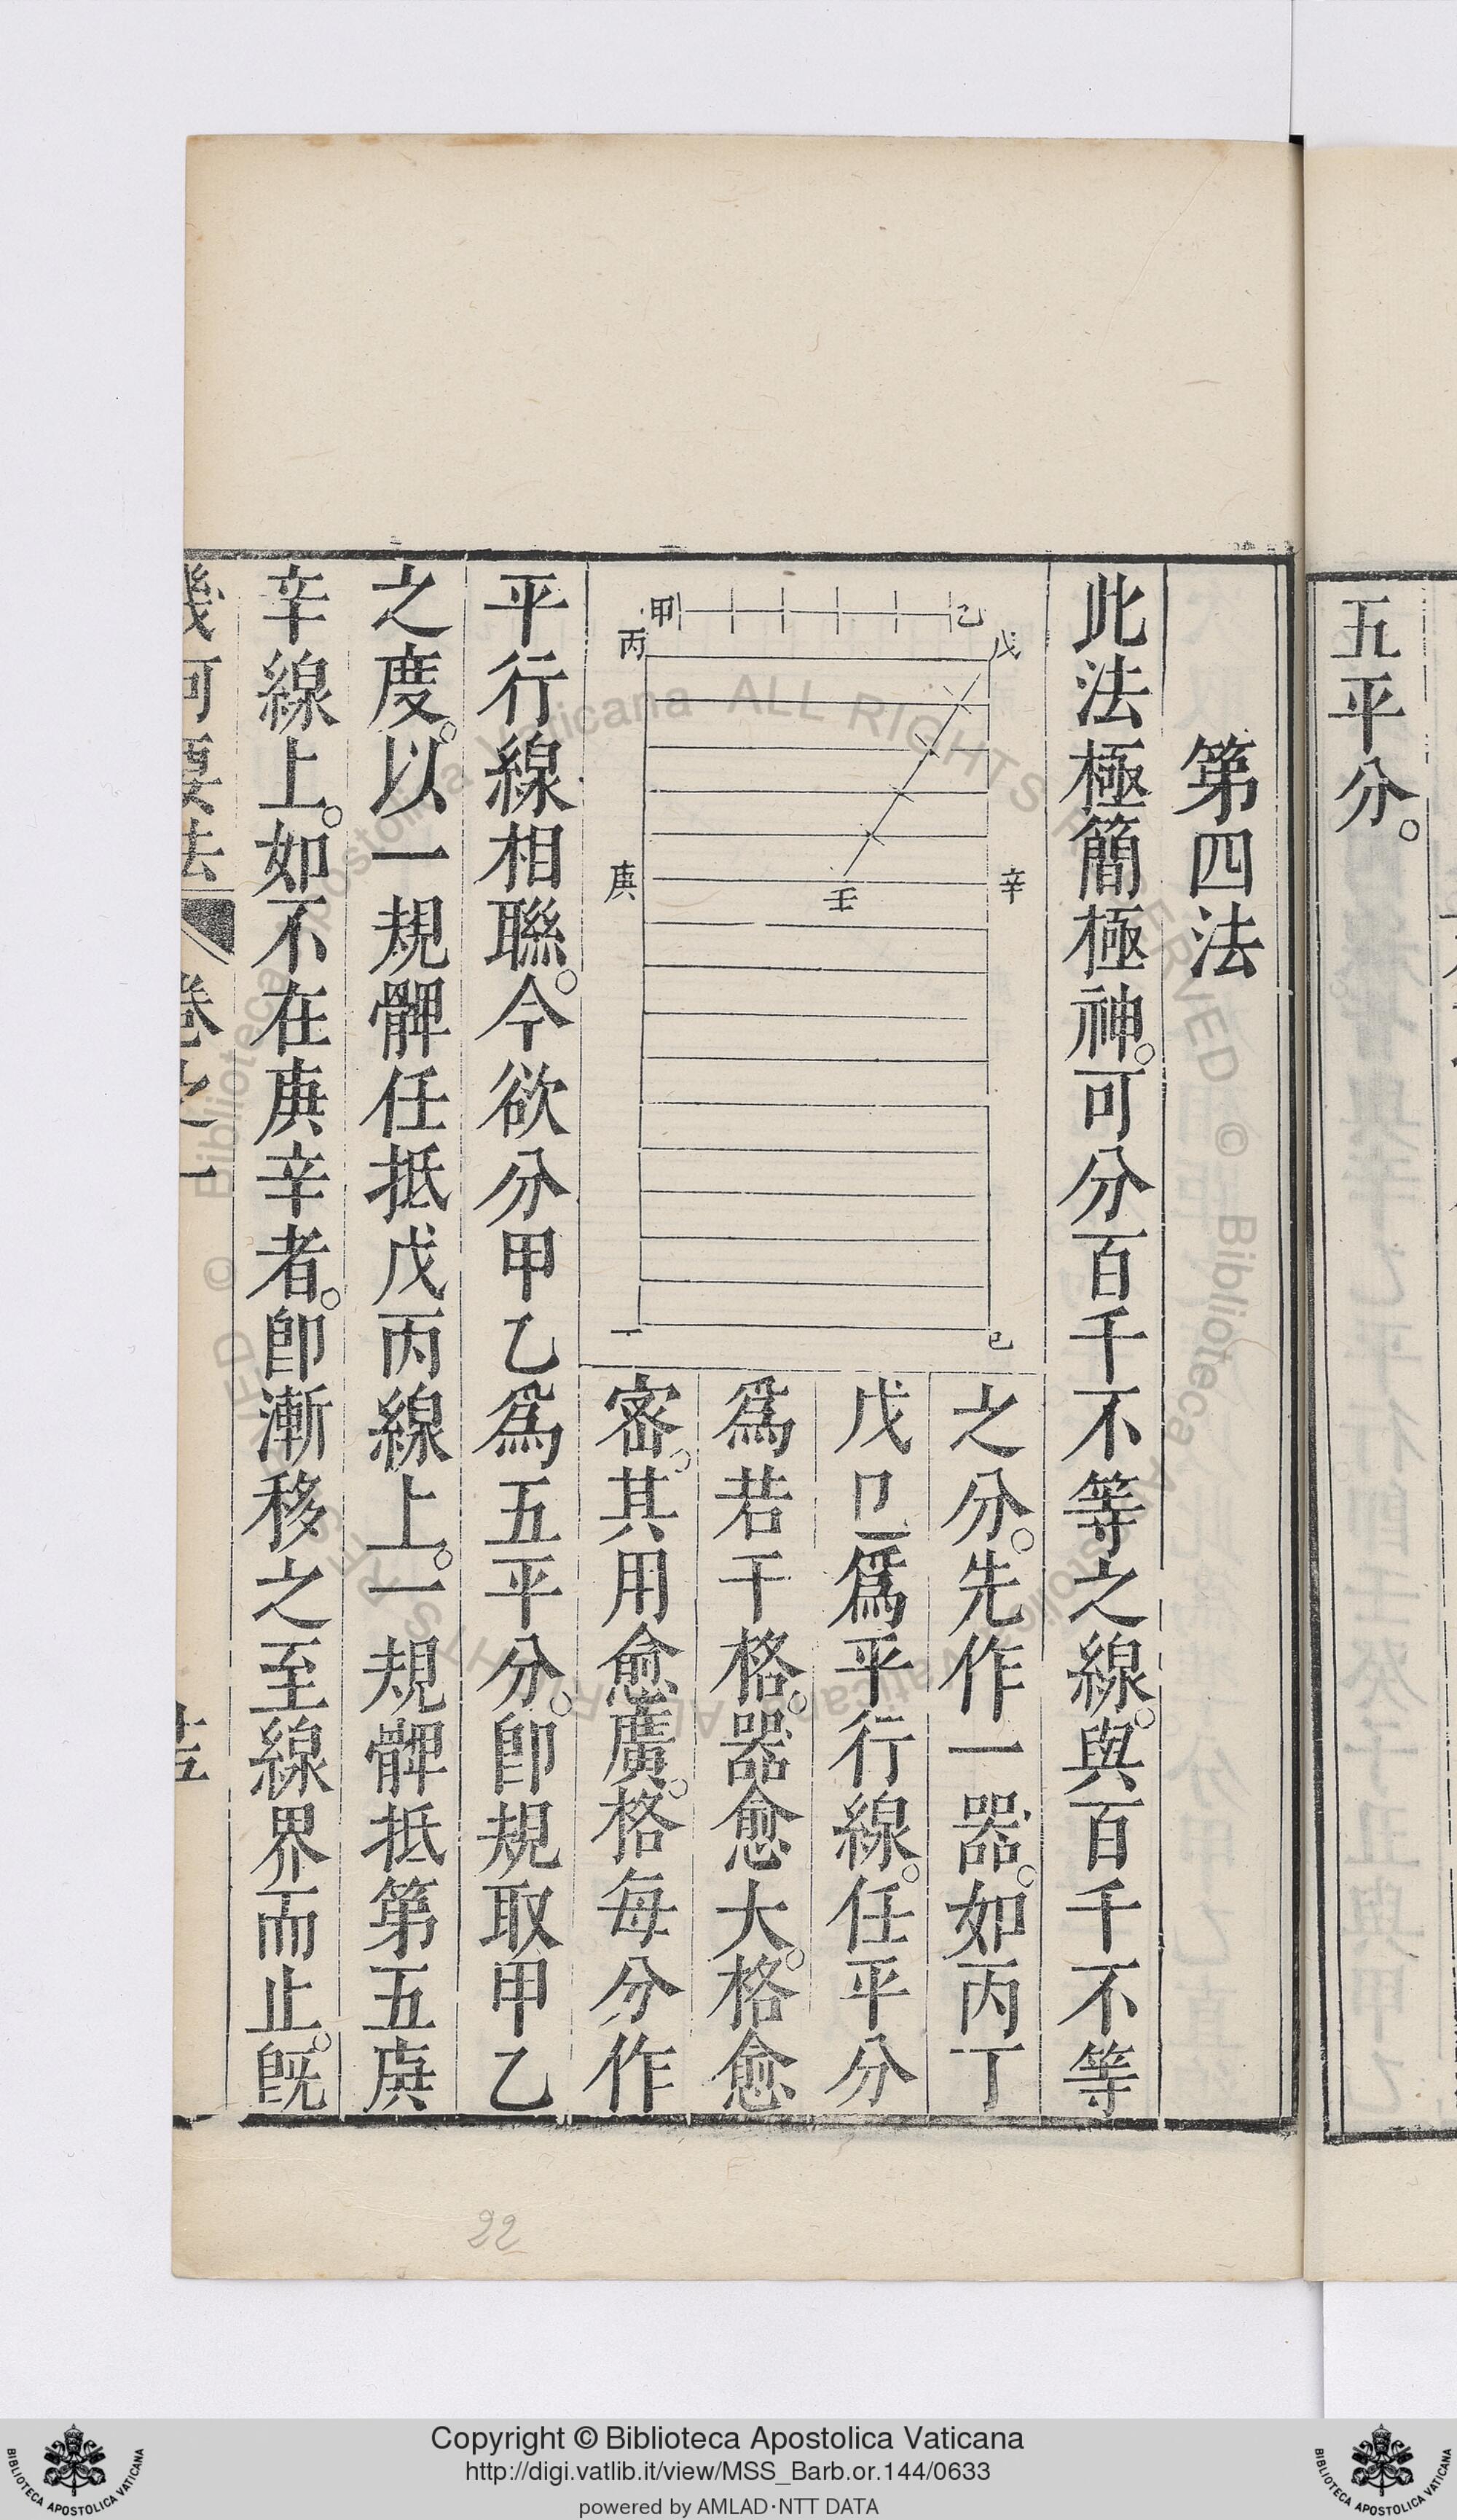 五平分。
第四法
此法極簡極神。可分百千不等之線。與百千不等
之分。先作一器。如丙丁
戊己爲平行線。任平分
爲若干格。器愈大。格愈
密。其用愈廣。格每分作
甲 乙
丙 戊
庚 壬 辛
丁 己
平行線相聯。今欲分甲乙爲五平分。卽規取甲乙
之度。以一規髀任抵戊丙線上。一規髀抵第五庚
辛線上。如不在庚辛者。卽漸移之至線界而止。旣
幾何要法 卷之一
22
© Biblioteca Apostolica Vaticana ALL RIGHTS RESERVED © Biblioteca Apostolica Vaticana ALL RIGHTS RESERVED
Copyright © Biblioteca Apostolica Vaticana
http://digi.vatlib.it/view/MSS_Barb.or.144/0633
powered by AMLAD·NTT DATA
BIBLIOTECA APOSTOLICA VATICANA
BIBLIOTECA APOSTOLICA VATICANA